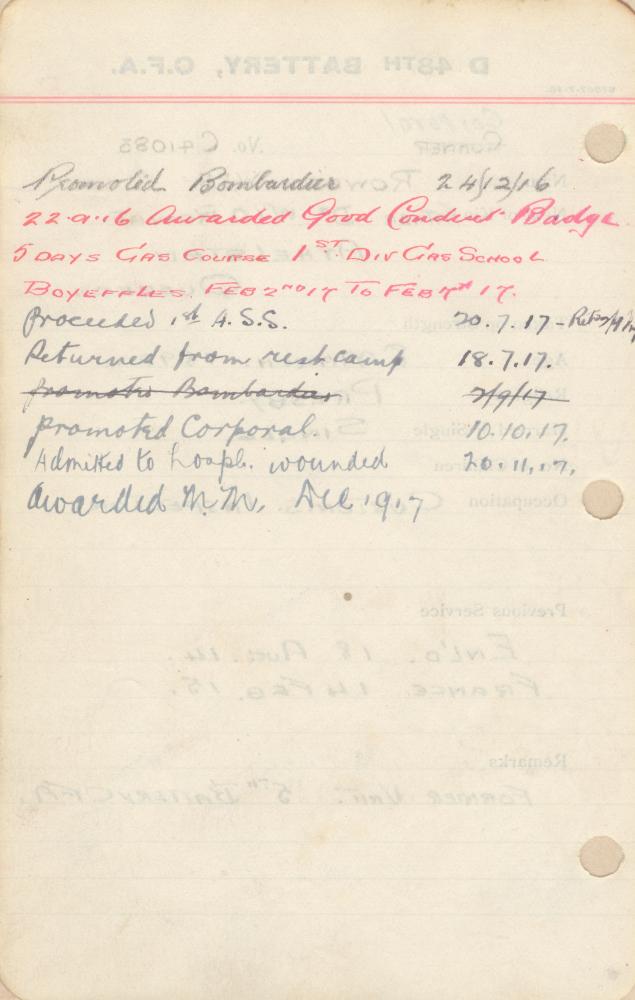 Promoted Bombardier 24/12/16
22.9.16 Awarded Good Conduct Badge
5 DAYS GAS COURSE 1ST DIV GAS SCHOOL
BOYEFFLES. FEB 2nd 17 TO FEB 7th 17.
Proceeded 1st A.S.S. 20.7.17 -
Returned from rest camp 18.7.17.
Promoted Bombardier 2/9/17
Promoted Corporal. 10.10.17.
Admitted to hospl. wounded 20.11.17.
Awarded M.M. Dec 1917